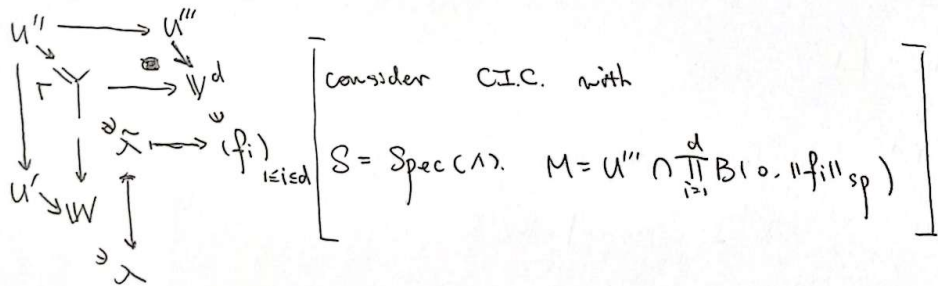 U'' → U'''
Γ Y → V^d
λ̃ ↦ (f_i)_{1≤i≤d}
U' W
∋ λ
consider C.I.C. with
S = Spec(Λ). M = U''' ∩ ∏_{i=1}^{d} B(0, ||f_i||_{sp})